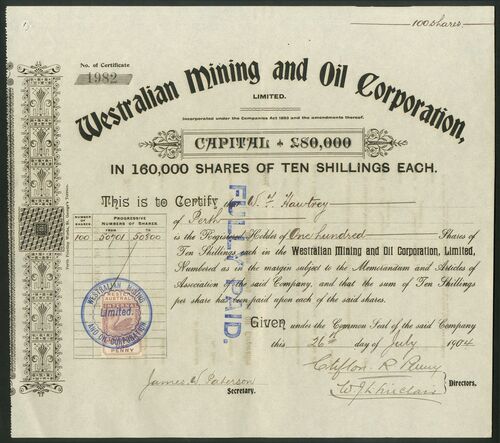 100 shares.
No. of Certificate
1982
Westralian Mining and Oil Corporation,
LIMITED.
Incorporated under the Companies Act 1893 and the amendments thereof.
CAPITAL - £80,000
IN 160,000 SHARES OF TEN SHILLINGS EACH.
This is to Certify that W. J. Hawtrey
of Perth
NUMBER OF SHARES
PROGRESSIVE NUMBERS OF SHARES
FROM TO
100 50701 50800
is the Registered Holder of One hundred Shares of
Ten Shillings each in the Westralian Mining and Oil Corporation, Limited,
Numbered as in the margin subject to the Memorandum and Articles of
Association of the said Company, and that the sum of Ten Shillings
per share has been paid upon each of the said shares.
FULLY PAID.
WESTRALIAN MINING
AND OIL CORPORATION
Limited.
AUSTRALIA
INTERNAL
PENNY
Given under the Common Seal of the said Company
this 26th day of July 1904
Clifton R Penny
James W Paterson
Secretary.
W J L Sinclair
Directors.